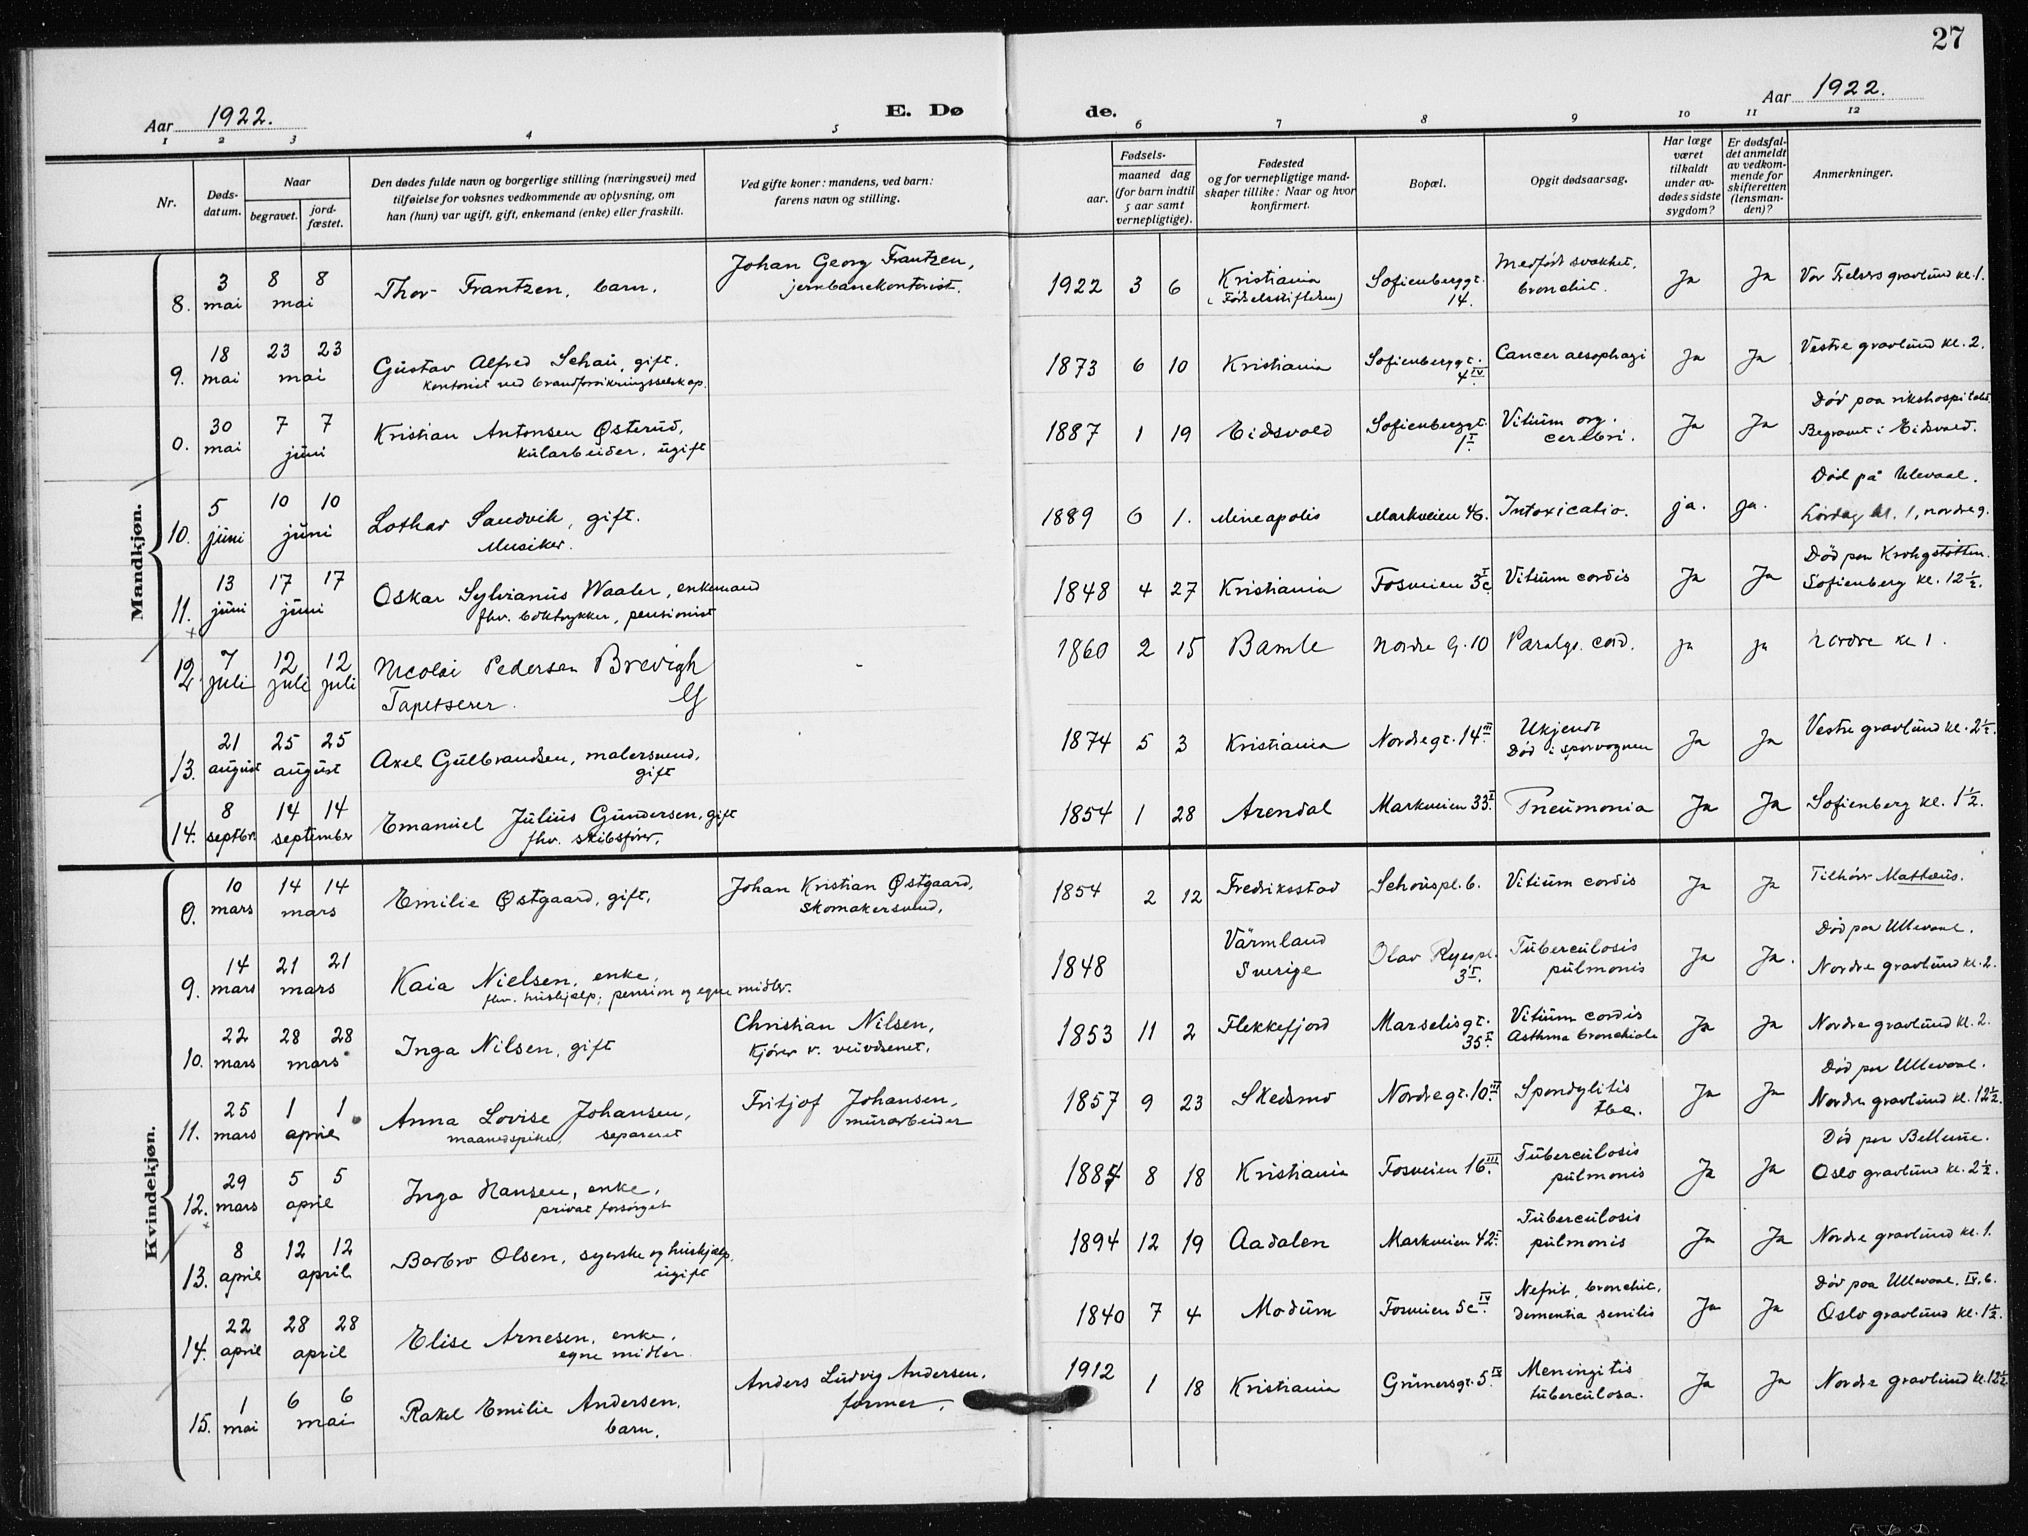 27
Aar 1922.
E. Dø
de.
Aar 1922.
1 2 3 4 5 6 7 8 9 10 11 12
Nr.
Døds-
datum.
Naar
begravet.
jord-
fæstet.
Den dødes fulde navn og borgerlige stilling (næringsvei) med
tilføielse for voksnes vedkommende av oplysning, om
han (hun) var ugift, gift, enkemand (enke) eller fraskilt.
Ved gifte koner: mandens, ved barn:
farens navn og stilling.
Fødsels-
aar.
maaned dag
(for barn indtil
5 aar samt
vernepligtige).
Fødested
og for vernepligtige mand-
skaper tillike: Naar og hvor
konfirmert.
Bopæl.
Opgit dødsaarsag.
Har læge
været
tilkaldt
under av-
dødes sidste
sygdom?
Er dødsfal-
det anmeldt
av vedkom-
mende for
skifteretten
(lensman-
den)?
Anmerkninger.
Mandkjøn.
8. 3 mai 8 8 mai
Thor Frantzen, barn.
Johan Georg Frantzen,
jernbanekontorist.
1922 3 6
Kristiania
(Fødselsstiftelsen)
Sofienberggt.
14.
Medfødt svakhet,
bronchit.
Ja Ja
Vor Frelsers gravlund kl. 1.
9. 18 mai 23 23 mai
Gustav Alfred Schau, gift.
kontorist ved brandforsikringsselskap.
1873 6 10
Kristiania
Sofienberggt.
4 IV.
Cancer aesophagi
Ja Ja
Vestre gravlund kl. 2.
0. 30 mai 7 7 juni
Kristian Antonsen Østerud,
kularbeider, ugift
1887 1 19
Eidsvold
Sofienberggt.
1 I.
Vitium org.
cerebri.
Ja Ja
Død paa rikshospitalet.
Begravet i Eidsvold.
10. 5 juni 10 10 juni
Lothar Sandvik, gift.
Musiker.
1889 6 1.
Mineapolis
Markveien 46.
Intoxicatio.
ja. ja.
Død på Ulevaal.
Lørdag kl. 1, nordre g.
11. 13 juni 17 17 juni
Oskar Sylvianus Waaler, enkemand
fhv. boktrykker, pensionist
1848 4 27
Kristiania
Fosveien 3c I
Vitium cordis
Ja Ja
Død paa Krohgstøtten.
Sofienberg kl. 12½.
12. 7 juli 12 juli 12 juli
Nicolai Pedersen Brevigh
Tapetserer. Gf
1860 2 15
Bamle
Nordre G. 10
Paralys. cord.
ja ja
Nordre kl 1.
13. 21 august 25 25 august
Axel Gulbrandsen, malersvend,
gift
1874 5 3
Kristiania
Nordregt. 14 III.
Ukjendt
Død i sporvognen
Ja Ja
Vestre gravlund kl. 2½.
14. 8 septbr. 14 14 september
Emanuel Julius Gundersen, gift
fhv. skibsfører.
1854 1 28
Arendal
Markveien 33 I.
Pneumonia
Ja Ja
Sofienberg kl. 1½.
Kvindekjøn.
0. 10 mars 14 14 mars
Emilie Østgaard, gift,
Johan Kristian Østgaard,
skomakersvend,
1854 2 12
Fredriksstad
Schouspl. 6.
Vitium cordis
Ja Ja
Tilhører Mathæus.
9. 14 mars 21 21 mars
Kaia Nielsen, enke,
fhv. hushjælp; pension og egne midler.
1848
Värmland
Sverige
Olav Ryespl.
3 I.
Tuberculosis
pulmonis
Ja Ja.
Død paa Ullevaal.
Nordre gravlund kl. 2.
10. 22 mars 28 28 mars
Inga Nilsen, gift
Christian Nilsen,
kjører v. veivæsenet,
1853 11 2
Flekkefjord
Marselisgt.
35 I.
Vitium cordis
Asthma bronchiale
Ja Ja
Nordre gravlund kl. 2.
11. 25 mars 1 1 april
Anna Lovise Johansen,
maanedspike, separeret
Fritjof Johansen,
murarbeider
1857 9 23
Skedsmo
Nordregt. 10 III.
Spondylitis
tbc.
Ja Ja
Død paa Ullevaal.
Nordre gravlund kl. 12½.
12. 29 mars 5 5 april
Inga Hansen, enke,
privat forsørget
1887 8 18
Kristiania
Fosveien 16 III.
Tuberculosis
pulmonis
Ja Ja
Død paa Bellevue.
Oslo gravlund kl. 2½.
13. 8 april 12 12 april
Barbro Olsen, syerske og hushjælp,
ugift
1894 12 19
Aadalen
Markveien 42 I.
Tuberculosis
pulmonis
Ja Ja
Nordre gravlund kl. 1.
14. 22 april 28 28 april
Elise Arnesen, enke,
egne midler.
1840 7 4
Modum
Fosveien 5c IV.
Nefrit, bronchit,
dementia senilis
Ja Ja
Død paa Ullevaal, IV, 6.
Oslo gravlund kl. 1½.
15. 1 mai 6 6 mai
Rakel Emilie Andersen,
barn.
Anders Ludvig Andersen,
former.
1912 1 18
Kristiania
Grünersgt. 5 IV
Meningitis
tuberculosa.
Ja Ja
Nordre gravlund kl. 12½